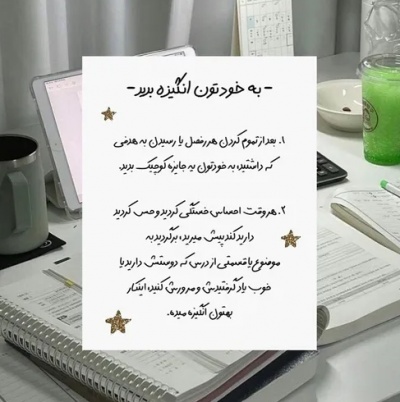 - به خودتون انگیزه بدید -
۱. بعد از تموم کردن هر فصل یا رسیدن به هدفی
که داشتید، به خودتون یه جایزه کوچیک بدید.
۲. هروقت احساس خستگی کردید و حس کردید
دارید کند پیش میرید، برگردید به
موضوع یا قسمتی از درس که دوستش دارید یا
خوب یاد گرفتیدش و مرورش کنید، اینکار
بهتون انگیزه میده.